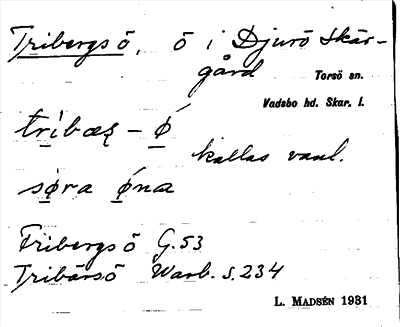 Tribergsö, ö i Djurö skär-
gård Torsö sn.
Vadsbo hd. Skar. l.
tribæʀ - ǿ
kallas vanl.
søra øna
Fribergsö G.53
Tribärsö Warb. s.234
L. MADSÉN 1931